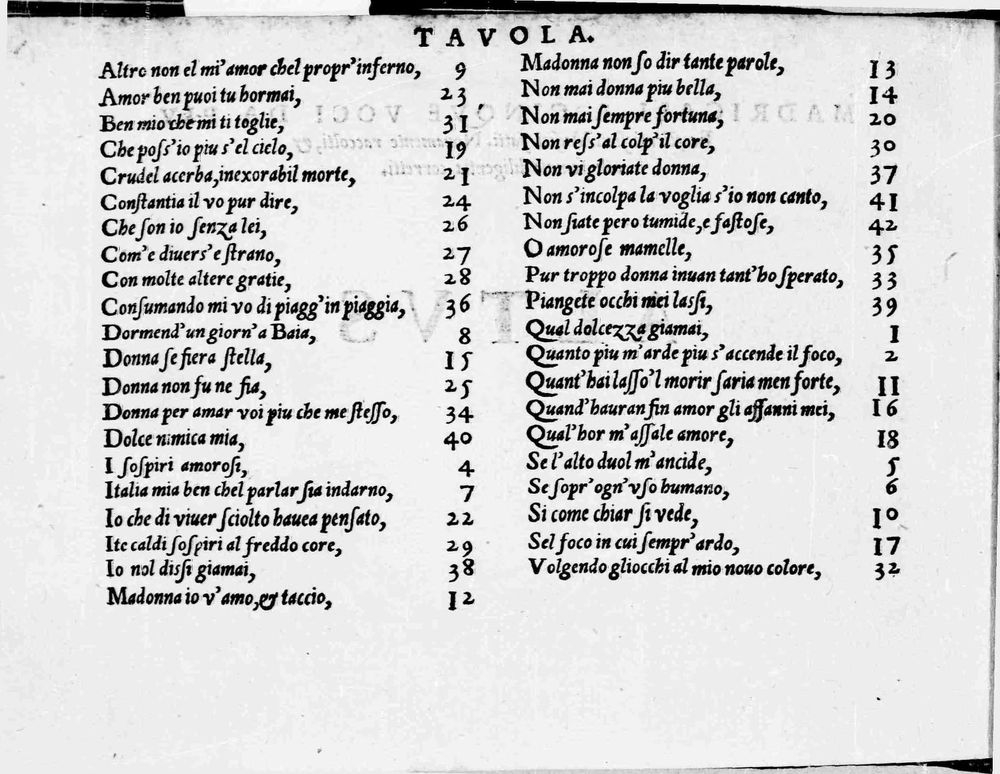 TAVOLA.
Altro non el mi'amor chel propr'inferno, 9
Amor ben puoi tu hormai, 23
Ben mio che mi ti toglie, 31
Che poſſ'io piu s'el cielo, 19
Crudel acerba, inexorabil morte, 21
Conſtantia il vo pur dire, 24
Che ſon io ſenza lei, 26
Com'e diuerſ'e ſtrano, 27
Con molte altere gratie, 28
Conſumando mi vo di piagg'in piaggia, 36
Dormend'un giorn'a Baia, 8
Donna ſe fiera ſtella, 15
Donna non fu ne fia, 25
Donna per amar voi piu che me ſteſſo, 34
Dolce nimica mia, 40
I ſoſpiri amoroſi, 4
Italia mia ben chel parlar ſia indarno, 7
Io che di viuer ſciolto hauea penſato, 22
Ite caldi ſoſpiri al freddo core, 29
Io nol diſſi giamai, 38
Madonna io v'amo, & taccio, 12
Madonna non ſo dir tante parole, 13
Non mai donna piu bella, 14
Non mai ſempre fortuna, 20
Non reſſ'al colp'il core, 30
Non vi gloriate donna, 37
Non s'incolpa la voglia s'io non canto, 41
Non ſiate pero tumide, e faſtoſe, 42
O amoroſe mamelle, 35
Pur troppo donna inuan tant'ho ſperato, 33
Piangete occhi mei laſſi, 39
Qual dolcezza giamai, 1
Quanto piu m'arde piu s'accende il foco, 2
Quant'hai laſſo'l morir ſaria men forte, 11
Quand'hauran fin amor gli affanni mei, 16
Qual'hor m'aſſale amore, 18
Se l'alto duol m'ancide, 5
Se ſopr'ogn'vſo humano, 6
Si come chiar ſi vede, 10
Sel foco in cui ſempr'ardo, 17
Volgendo gliocchi al mio nouo colore, 32